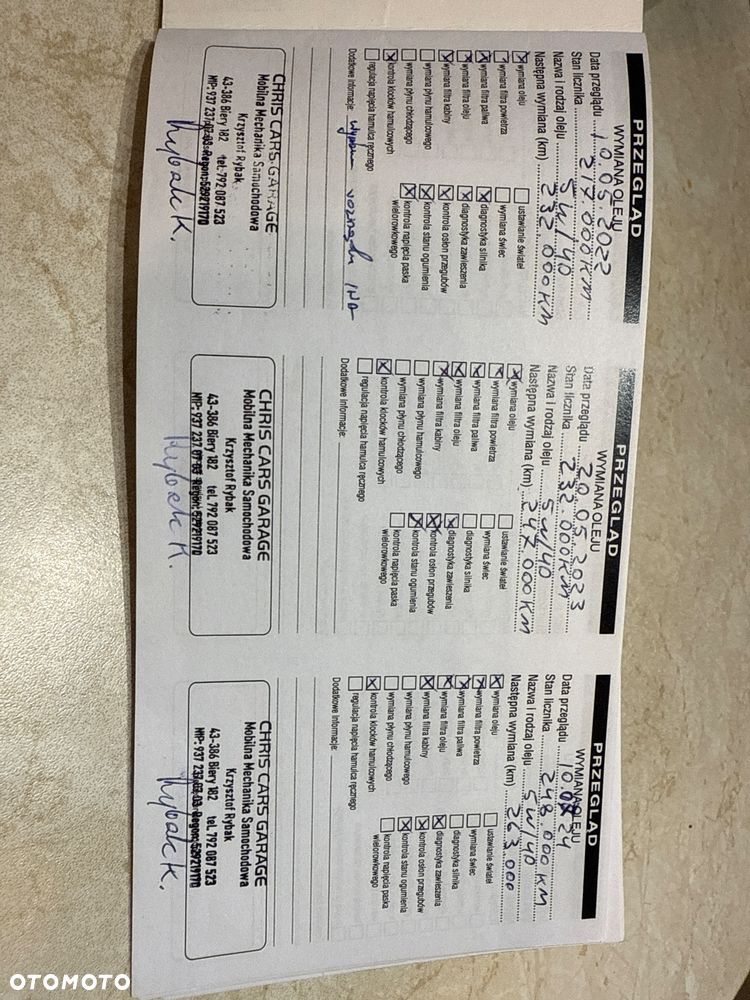 PRZEGLĄD
WYMIANA OLEJU
Data przeglądu 10.05.2022
Stan licznika 217.000 KM
Nazwa i rodzaj oleju 5W/40
Następna wymiana (km) 232 000 KM
wymiana oleju
wymiana filtra powietrza
wymiana filtra paliwa
wymiana filtra oleju
wymiana filtra kabiny
wymiana płynu hamulcowego
wymiana płynu chłodzącego
kontrola klocków hamulcowych
regulacja napięcia hamulca ręcznego
ustawianie świateł
wymiana świec
diagnostyka silnika
diagnostyka zawieszenia
kontrola osłon przegubów
kontrola stanu ogumienia
kontrola napięcia paska
wielorowkowego
Dodatkowe informacje: rozrządu INA
CHRIS CARS GARAGE
Mobilna Mechanika Samochodowa
Krzysztof Rybak
43-386 Biery 182 tel. 792 087 523
NIP: 937 237 07 03 Regon: 529219170
Rybak K.
PRZEGLĄD
WYMIANA OLEJU
Data przeglądu 20.05.2023
Stan licznika 232.000 KM
Nazwa i rodzaj oleju 5W/40
Następna wymiana (km) 247 000 KM
wymiana oleju
wymiana filtra powietrza
wymiana filtra paliwa
wymiana filtra oleju
wymiana filtra kabiny
wymiana płynu hamulcowego
wymiana płynu chłodzącego
kontrola klocków hamulcowych
regulacja napięcia hamulca ręcznego
ustawianie świateł
wymiana świec
diagnostyka silnika
diagnostyka zawieszenia
kontrola osłon przegubów
kontrola stanu ogumienia
kontrola napięcia paska
wielorowkowego
Dodatkowe informacje:
CHRIS CARS GARAGE
Mobilna Mechanika Samochodowa
Krzysztof Rybak
43-386 Biery 182 tel. 792 087 523
NIP: 937 237 07 03 Regon: 529219170
Rybak K.
PRZEGLĄD
WYMIANA OLEJU
Data przeglądu
Stan licznika 248 000 KM
Nazwa i rodzaj oleju 5W/40
Następna wymiana (km) 263 000
wymiana oleju
wymiana filtra powietrza
wymiana filtra paliwa
wymiana filtra oleju
wymiana filtra kabiny
wymiana płynu hamulcowego
wymiana płynu chłodzącego
kontrola klocków hamulcowych
regulacja napięcia hamulca ręcznego
ustawianie świateł
wymiana świec
diagnostyka silnika
diagnostyka zawieszenia
kontrola osłon przegubów
kontrola stanu ogumienia
kontrola napięcia paska
wielorowkowego
Dodatkowe informacje:
CHRIS CARS GARAGE
Mobilna Mechanika Samochodowa
Krzysztof Rybak
43-386 Biery 182 tel. 792 087 523
NIP: 937 237 07 03 Regon: 529219170
Rybak K.
OTOMOTO